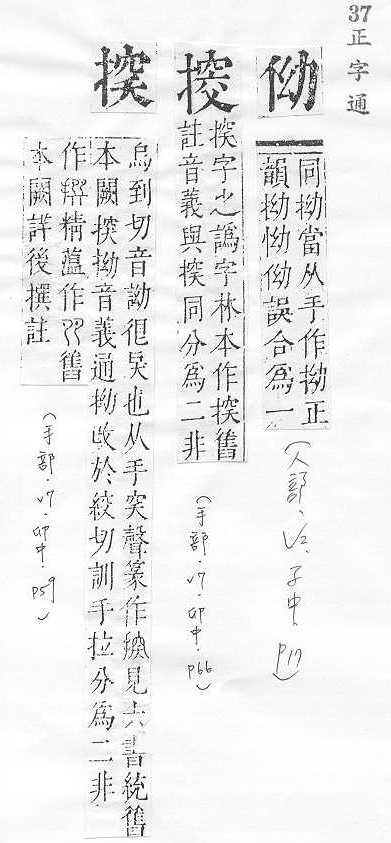 37正字通
㑃
同拗當从手作拗正
韻拗怮㑃誤合為一
(人部.V2.子中.P17)
揬字之譌字林本作揬舊
註音義與揬同分為二非
(手部.V7.卯中.P66)
烏到切音詏很戾也从手突聲篆作
見六書統舊
本闕揬拗音義通拗改於絞切訓手拉分為二非
作
精薀作
舊
本闕詳後撰註
(手部.V7.卯中.P59)